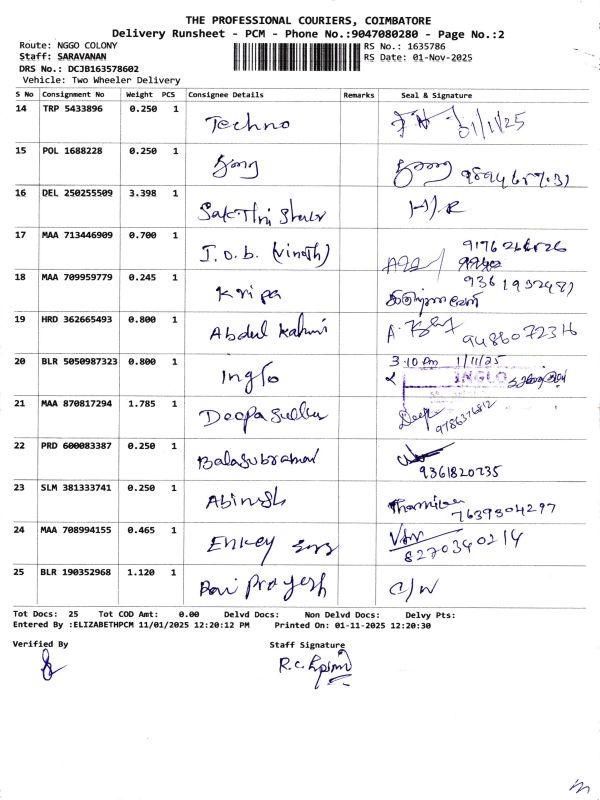 THE PROFESSIONAL COURIERS, COIMBATORE
Delivery Runsheet - PCM - Phone No.:9047080280 - Page No.:2
Route: NGGO COLONY
RS No.: 1635786
Staff: SARAVANAN
RS Date: 01-Nov-2025
DRS No.: DCJB163578602
Vehicle: Two Wheeler Delivery
S No Consignment No Weight PCS Consignee Details Remarks Seal & Signature
14 TRP 5433896 0.250 1 Techno 01/11/25
15 POL 1688228 0.250 1
16 DEL 250255509 3.398 1 H/R
17 MAA 713446909 0.700 1 I.O.b. (vinoth)
18 MAA 709959779 0.245 1 Kripa
19 HRD 362665493 0.800 1 Abdul
20 BLR 5050987323 0.800 1 Inglo 3.10 Pm 1/11/25
INGLO
21 MAA 870817294 1.785 1 Deepa Deepa
9786376812
22 PRD 600083387 0.250 1 Balasubramani
9361820735
23 SLM 381333741 0.250 1 Abinesh
7639304297
24 MAA 708994155 0.465 1 Enkey
8270340214
25 BLR 190352968 1.120 1 C/W
Tot Docs: 25 Tot COD Amt: 0.00 Delvd Docs: Non Delvd Docs: Delvy Pts:
Entered By :ELIZABETHPCM 11/01/2025 12:20:12 PM Printed On: 01-11-2025 12:20:30
Verified By Staff Signature